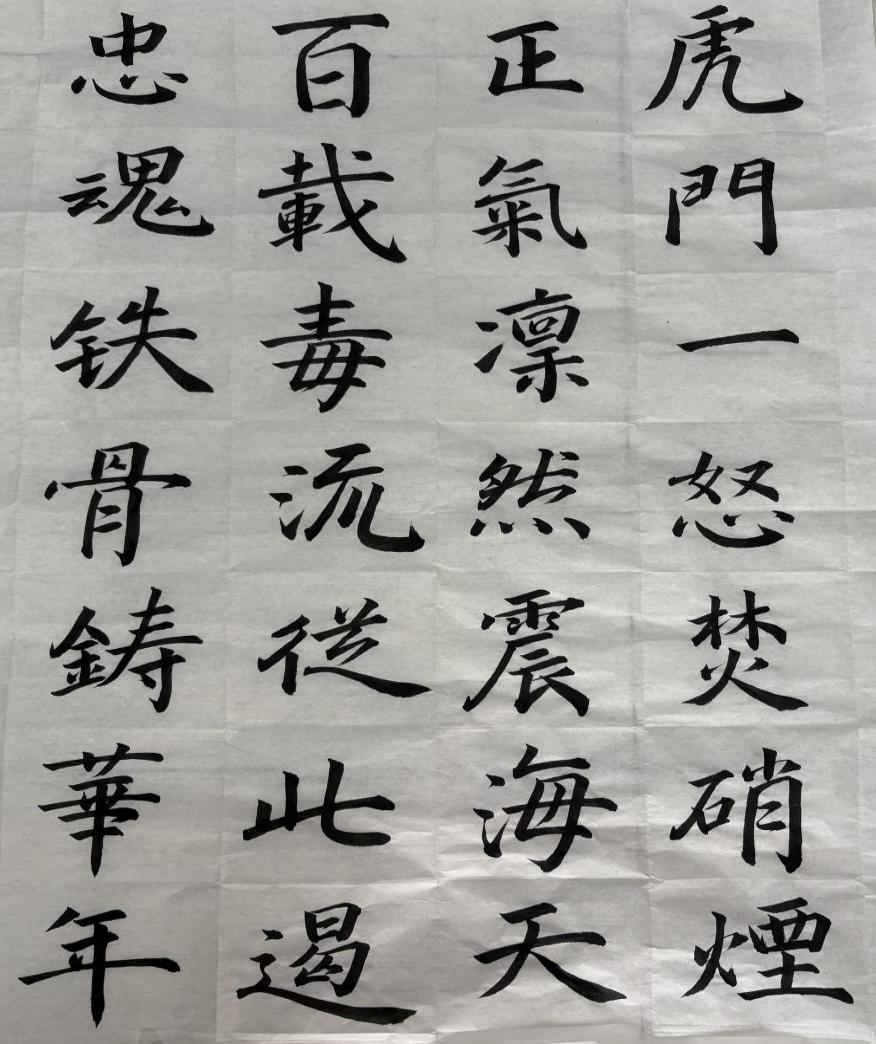 虎門一怒焚硝煙
正氣凛然震海天
百載毒流從此遏
忠魂铁骨鋳華年